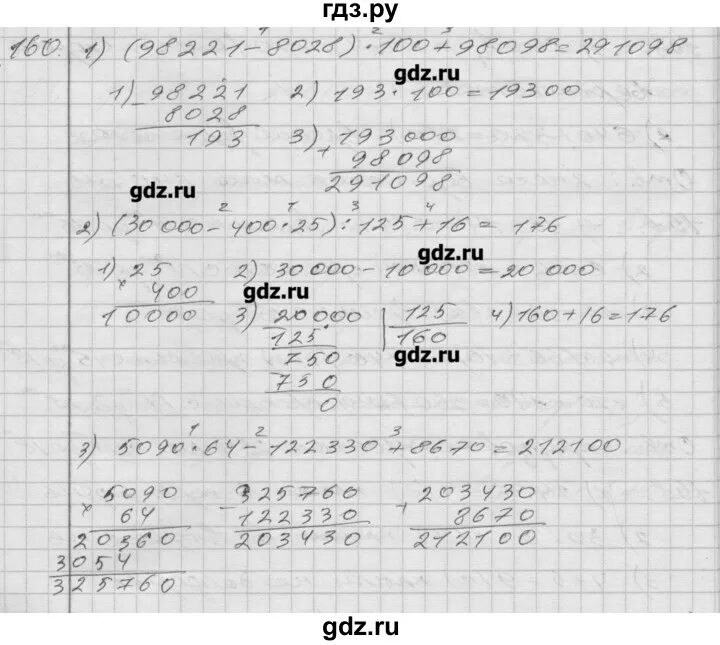 гдз.ру
160. 1) (98221-8028)·100+98098=291098
1 2 3
1) 98221
- 8028
193
2) 193·100=19300
3) 193000
+ 98098
291098
gdz.ru
gdz.ru
2) (30000-400·25):125+16=176
2 1 3 4
gdz.ru
1) 25
× 400
10000
2) 30000-10000=20000
3) 20000 | 125
- 125 160
750
- 750
0
4) 160+16=176
gdz.ru
gdz.ru
3) 5090·64-122330+8670=212100
1 2 3
5090
× 64
20360
3054
325760
325760
- 122330
203430
203430
+ 8670
212100
gdz.ru